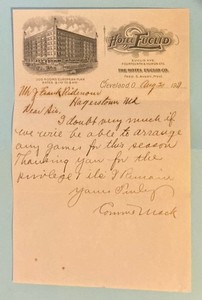 HOTEL EUCLID
THE HOTEL EUCLID CO.
Cleveland O. Aug 20
Mr J Frank Ridenour
Hagerstown Md
Dear Sir.
I doubt very much if
we were be able to arrange
any games for this season
Thanking you for the
privilege I remain
Yours Truly
Connie Mack